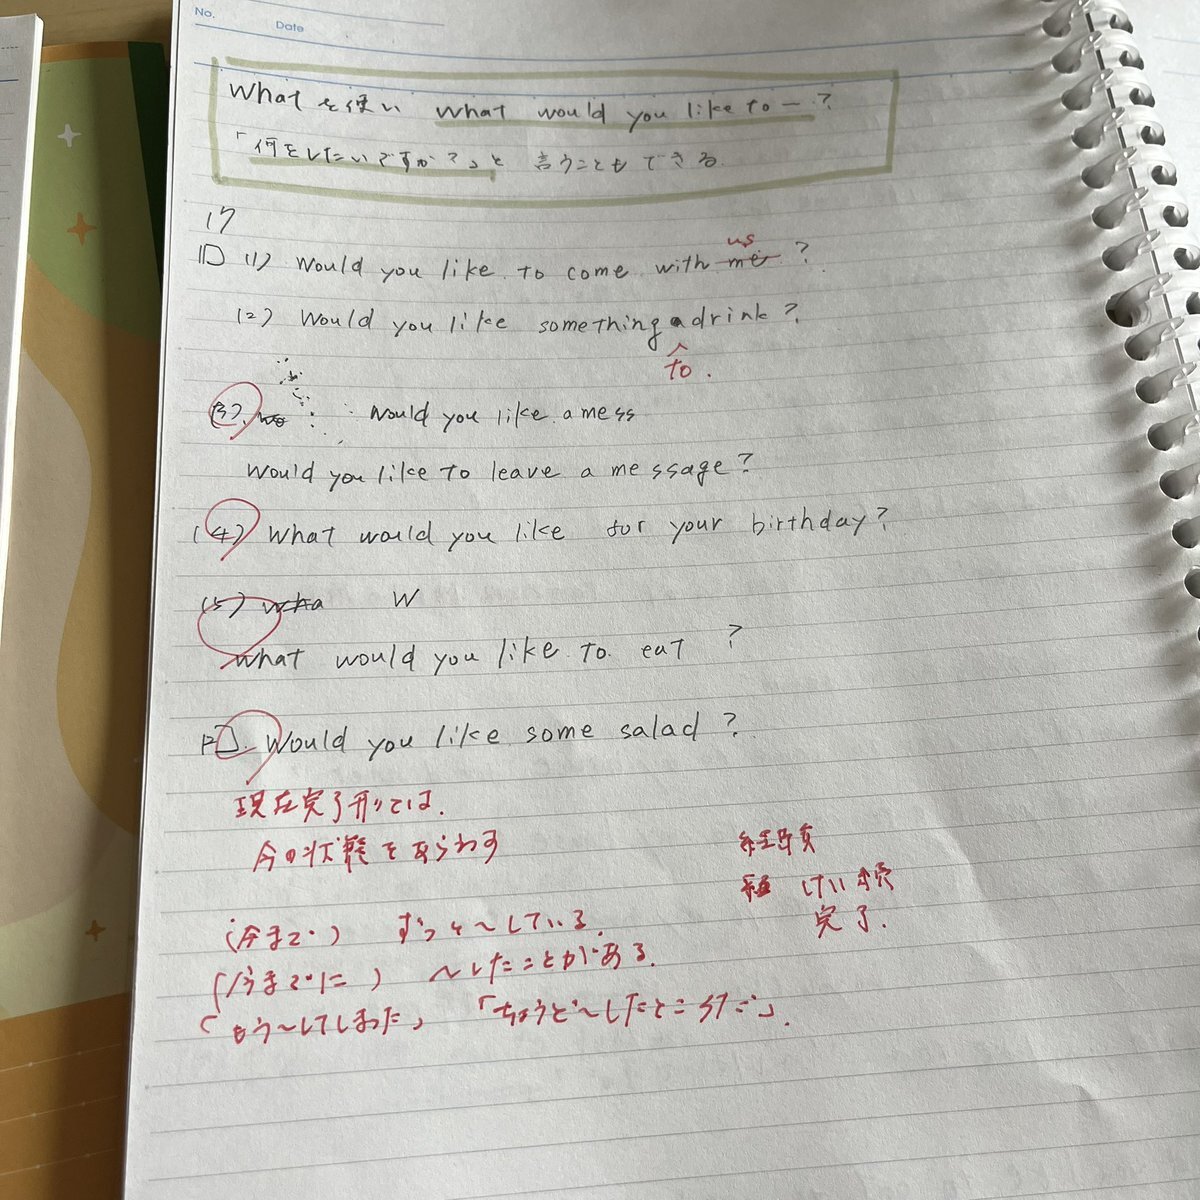 No.
Date
Whatを使い What would you like to ― ?
「何をしたいですか?」と 言うこともできる
17
1 (1) Would you like to come with me ?
us
(2) Would you like something drink ?
to .
(3) Would you like a mess
Would you like to leave a message?
(4) What would you like for your birthday?
(5) Wha W
What would you like to eat ?
2. Would you like some salad ?
現在完了形では.
今の状態をあらわす
経験
けい続
完了.
(今まで) ずっと〜している.
(今までに) 〜したことがある.
「もう〜してしまった」 「ちょうど〜したところだ」.